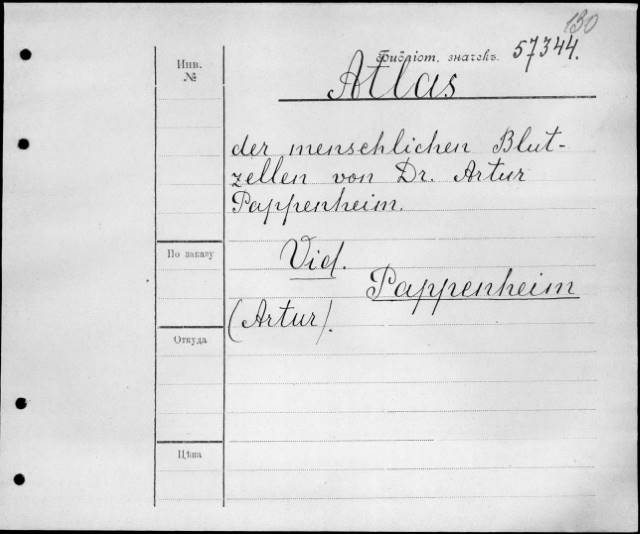 130
Инв.
№
Библіот. значекъ. 57344.
Atlas
der menschlichen Blut-
zellen von Dr. Artur
Pappenheim.
По заказу
Vid.
Pappenheim
(Artur).
Откуда
Цѣна